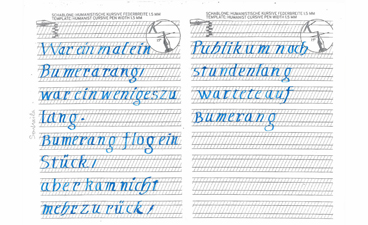 SCHABLONE: HUMANISTISCHE KURSIVE FEDERBREITE 1.5 MM
TEMPLATE: HUMANIST CURSIVE PEN WIDTH 1.5 MM
War einmal ein
Bumerarang,
war ein weniges zu
lang.
Bumerang flog ein
Stück,
aber kam nicht
mehr zurück,
SCHABLONE: HUMANISTISCHE KURSIVE FEDERBREITE 1.5 MM
TEMPLATE: HUMANIST CURSIVE PEN WIDTH 1.5 MM
Publikum noch
stundenlang
wartete auf
Bumerang